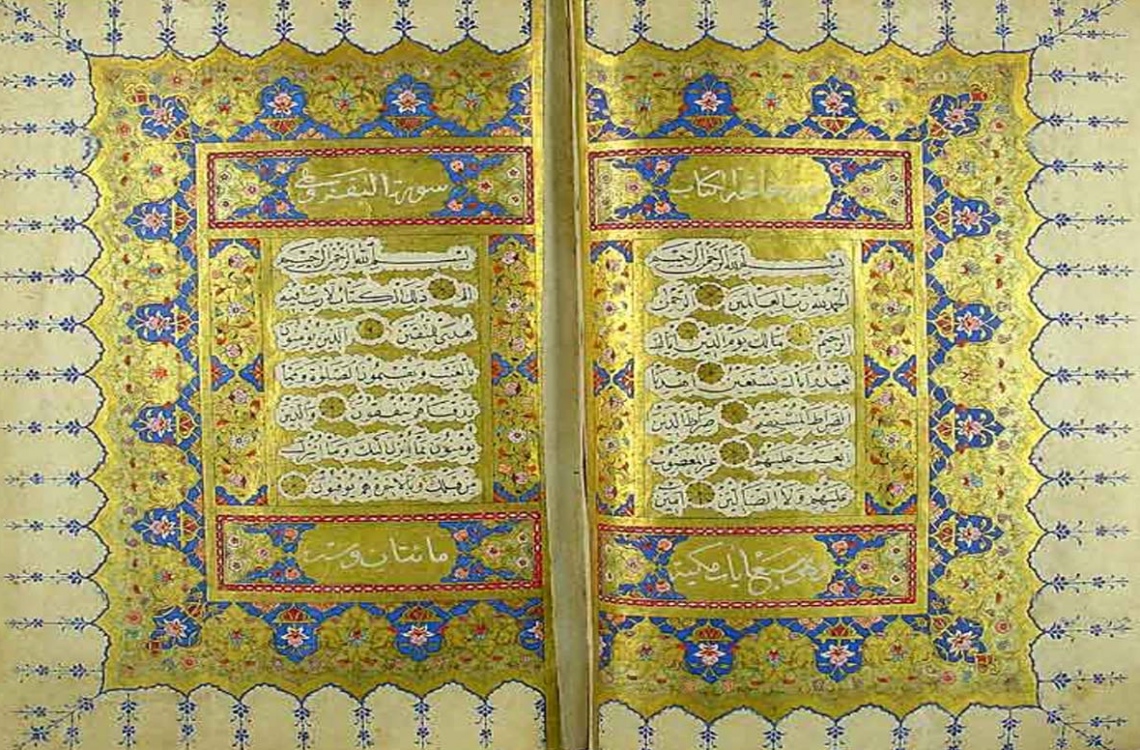 سورة فاتحة الكتاب
بسم الله الرحمن الرحيم
الحمد لله رب العالمين الرحمن
الرحيم مالك يوم الدين اياك
نعبد واياك نستعين اهدنا
الصراط المستقيم صراط الذين
انعمت عليهم غير المغضوب
عليهم ولا الضالين امين
وهي سبع ايات مكية
سورة البقرة وهي
بسم الله الرحمن الرحيم
الم ذلك الكتاب لا ريب فيه
هدى للمتقين الذين يؤمنون
بالغيب ويقيمون الصلوة ومما
رزقناهم ينفقون والذين
يؤمنون بما انزل اليك وما انزل
من قبلك وبالاخرة هم يوقنون
مائتان وست